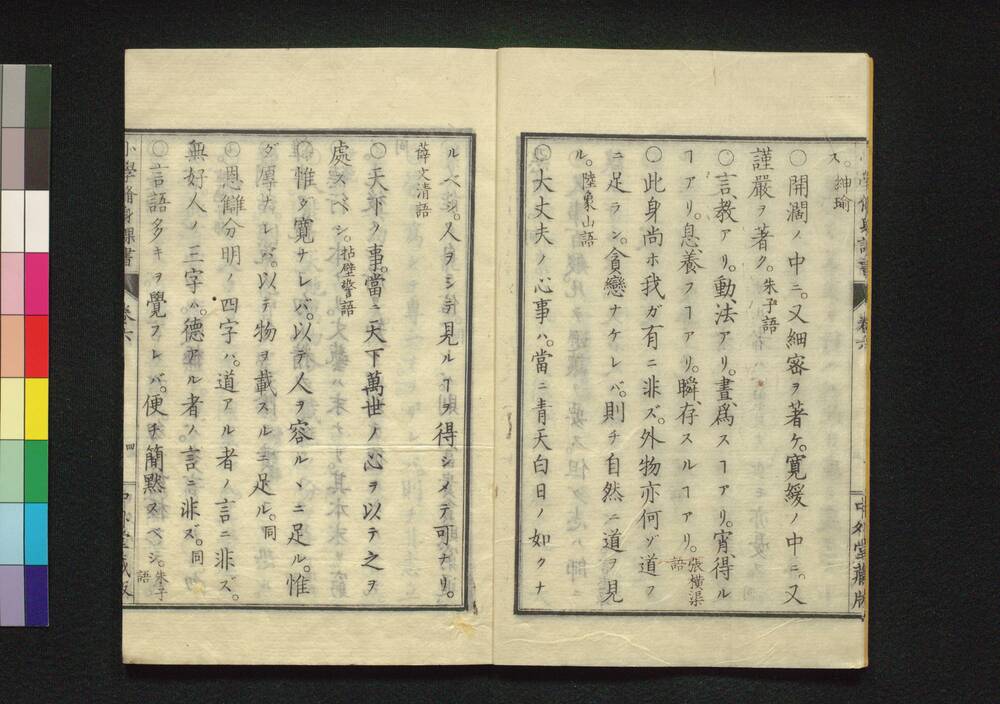 小學脩身課書 卷六
中外堂藏版
ス。紳瑜
〇開濶ノ中ニ。又細密ヲ著ケ。寛緩ノ中ニ。又
謹嚴ヲ著ク。朱子語
〇言教アリ。動法アリ。晝爲スヿアリ。宵得ル
ヿアリ。息養フヿアリ。瞬存スルヿアリ。張橫渠語
〇此身尚ホ我ガ有ニ非ズ。外物亦何ゾ道フ
ニ足ラン。貪戀ナケレバ。則チ自然ニ道ヲ見
ル。陸象山語
〇大丈夫ノ心事ハ。當ニ青天白日ノ如クナ
ルベシ。人ヲシテ得見ルヿヲ得シメテ可ナリ。
薛文清語
〇天下ノ事。當ニ天下萬世ノ心ヲ以テ之ヲ
處スベシ。拈壁警語
〇惟ダ寛ナレバ。以テ人ヲ容ルヽニ足ル。惟
ダ厚ナレバ。以テ物ヲ載スルニ足ル。同
〇恩讎分明ノ四字ハ。道アル者ノ言ニ非ズ。
無好人ノ三字ハ。德アル者ノ言ニ非ズ。同
〇言語多キヲ覺フレバ。便チ簡默スベシ。朱子語
小學脩身課書 卷六 四